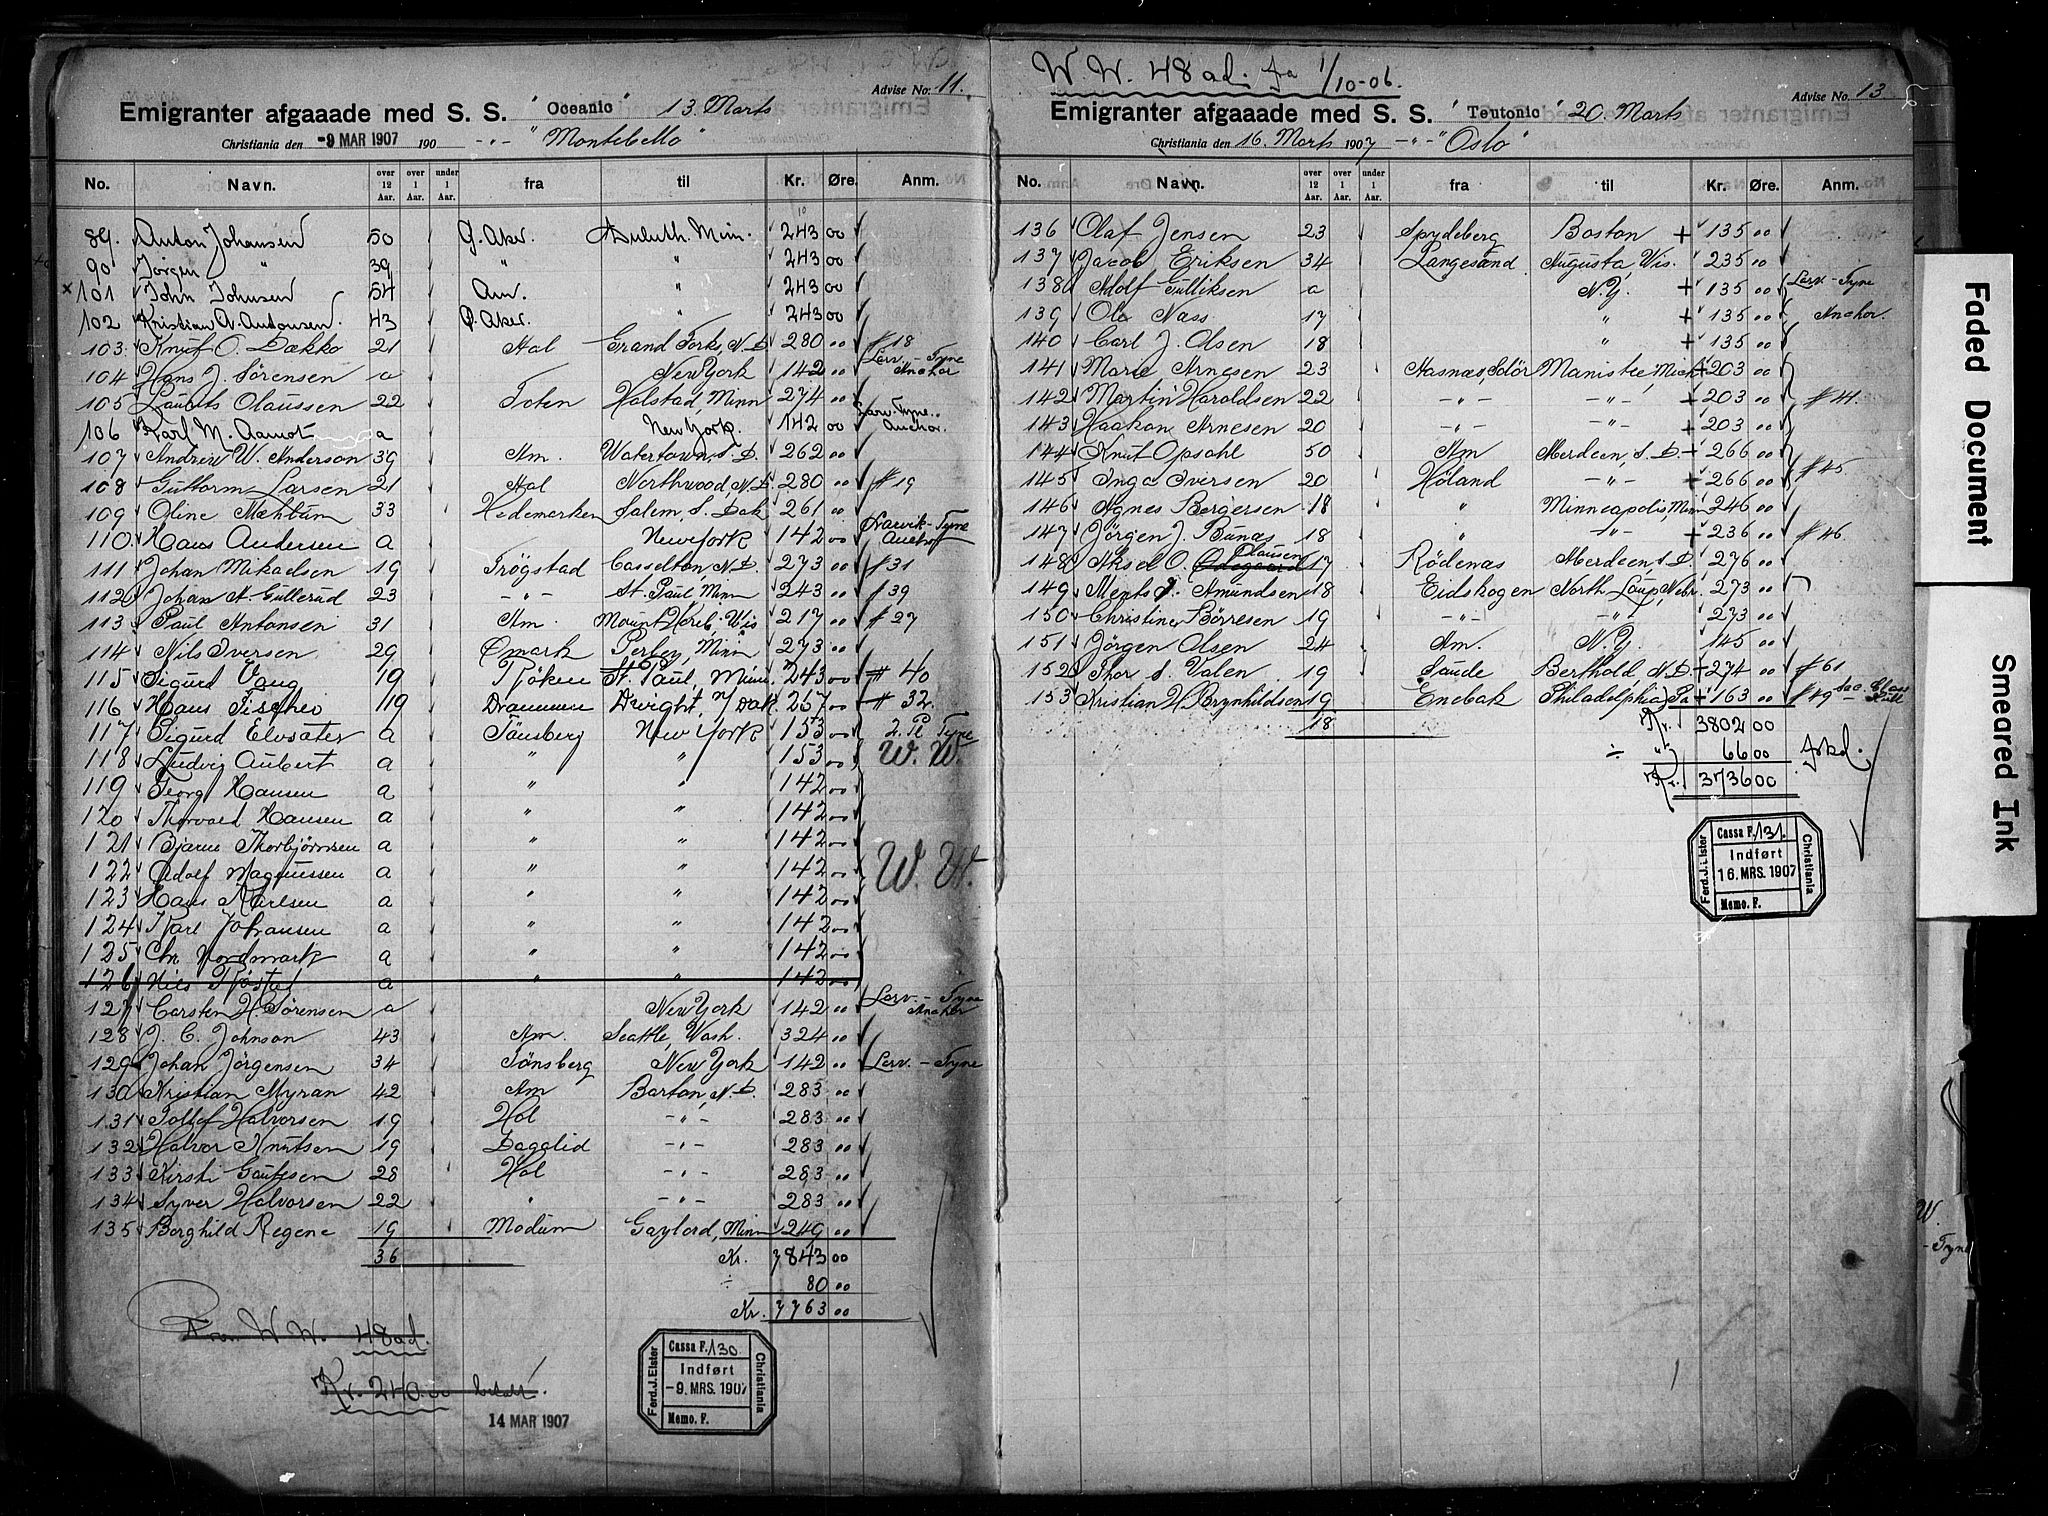 Advise No: 11.
Emigranter afgaaade med S. S. "Oceanic" 13. Marts
Christiania den -9 MAR 1907 190 -"- "Montebello"
No. Navn. over 12 Aar. over 1 Aar. under 1 Aar. fra til Kr. Øre. Anm.
89. Anton Johansen 50 Ø. Aker. Duluth. Minn. 243 00
90 Jørgen " 39 " " 243 00
x 101 John Johnsen 54 Am. " 243 00
102 Kristian A. Antonsen. 43 Ø. Aker. " 243 00
103. Knut O. Dokko 21 Hal Grand Forks, N.D. 280 00 # 18
104 Hans J. Sørensen a New York 142 00 Larv. - Tyne Anchor
105 Laurits Olaussen 22 Toten Halstad, Minn 274 00
106 Karl M. Aamot a New York. 142 00 Larv. Tyne. Anchor.
107 Andrew W. Anderson 39 Am. Watertown, S.D. 262 00
108 Guttorm Larsen 21 Hal Northwood, N.D. 280 00 # 19
109 Oline Mæhlum 33 Hedemarken Salem, S. Dak 261 00
110. Hans Andersen a New York 142 00 Larvik-Tyne Anchor
111 Johan Mikaelsen 19 Trøgstad Casselton, N.D. 273 00 # 31
112 Johan A. Gullerud 23 -"- St. Paul, Minn 243 00 # 39
113. Paul Antonsen 31 Am. Mount Horeb. Wis 217 00 # 27
114 Nils Iversen 29 Ømark Perley, Minn 273 00
115 Sigurd Vang 19 Trøken St. Paul, Minn. 243 00 # 40
116 Hans Fischer 19 Drammen Dwight, N Dak 267 00 # 32.
117 Sigurd Elvsäter a Tönsberg New York 153 00 2. Pl Tyne
118 Ludvig Aubert a " " 153 00 W. W.
119 Georg Hansen a " " 142 00
120 Thorvald Hansen a " " 142 00
121 Bjarne Thorbjörnsen a " " 142 00
122 Adolf Magnussen a " " 142 00 W. W.
123 Hans Karlsen a " " 142 00
124 Karl Johansen a " " 142 00
125 Chr. Nordmark a " " 142 00
126 Nils Röstad a " " 142 00
127 Carsten H. Sørensen a New York 142 00 Larv. - Tyne Anchor
128 J. C. Johnson 43 Am. Seattle, Wash. 324 00
129 Johan Jørgensen 34 Tönsberg New York 142 00 Larv. - Tyne
130 Kristian Myran 42 Am Barton, N.D. 283 00
131 Tollef Halvorsen 19 Hol -"- 283 00
132 Halvor Knutsen 19 Dagalid -"- 283 00
133 Kirsti Gautesen 28 Hol -"- 283 00
134 Syver Halvorsen 22 " -"- 283 00
135 Borghild Regene 19 Modum Gaylord, Minn 249 00
36 Kr. 7843 00
÷ 80 00
Kr. 7763 00
From W W. 48 ad.
Kr. 240.00 betalt.
14 MAR 1907
Ferd. J. Elster
Cassa F. 130
Indført
-9. MRS. 1907
Memo. F.
Christiania
W. W. 48 ad. fa 1/10-06.
Advise No. 13
Emigranter afgaaade med S. S. "Teutonic" 20. Marts
Christiania den 16. Marts 1907 -"- "Oslo"
No. Navn. over 12 Aar. over 1 Aar. under 1 Aar. fra til Kr. Øre. Anm.
136 Olaf Jensen 23 Spydeberg Boston + 135 00
137 Jacob Eriksen 34 Langesund Augusta, Wis. 235 00
138 Adolf Gulliksen a N.Y. + 135 00 Larv - Tyne
139 Ole Næss 17 " + 135 00 Anchor.
140 Carl J. Olsen 18 " + 135 00
141 Marie Arnesen 23 Aasnæs, Solör Manistee, Mich + 203 00
142 Martin Haroldsen 22 -"- -"- + 203 00 # 41.
143 Haakon Arnesen 20 -"- -"- + 203 00
144 Knut Opsahl 50 Am Aberdeen, S.D. + 266 00
145 Inga Iversen 20 Høland -"- + 266 00 # 45
146 Agnes Bergersen 18 " Minneapolis, Minn 246 00
147 Jørgen J. Bunæs 18 " -"- + 236 00 # 46
148 Aksel O. Odegaard Olausen 17 Rödenæs Aberdeen S.D. + 276 00
149 Ments J. Amundsen 18 Eidskogen North Loup, Nebr. 273 00
150 Christine Børresen 19 -"- -"- 273 00
151 Jörgen Olsen 24 Am. N.Y. 145 00
152 Thor S. Valen 19 Saude Berthold N.D. + 274 00 # 61
153 Kristian H. Brynhildsen 19 Enebak Philadelphia, Pa + 163 00 # 49
18 Kr. 3802 00
÷ " 66 00
Kr. 3736 00
Ferd. J. Elster
Cassa F. 131.
Indført
16. MRS. 1907
Memo. F.
Christiania
Faded Document
Smeared Ink
W.
- Tyne